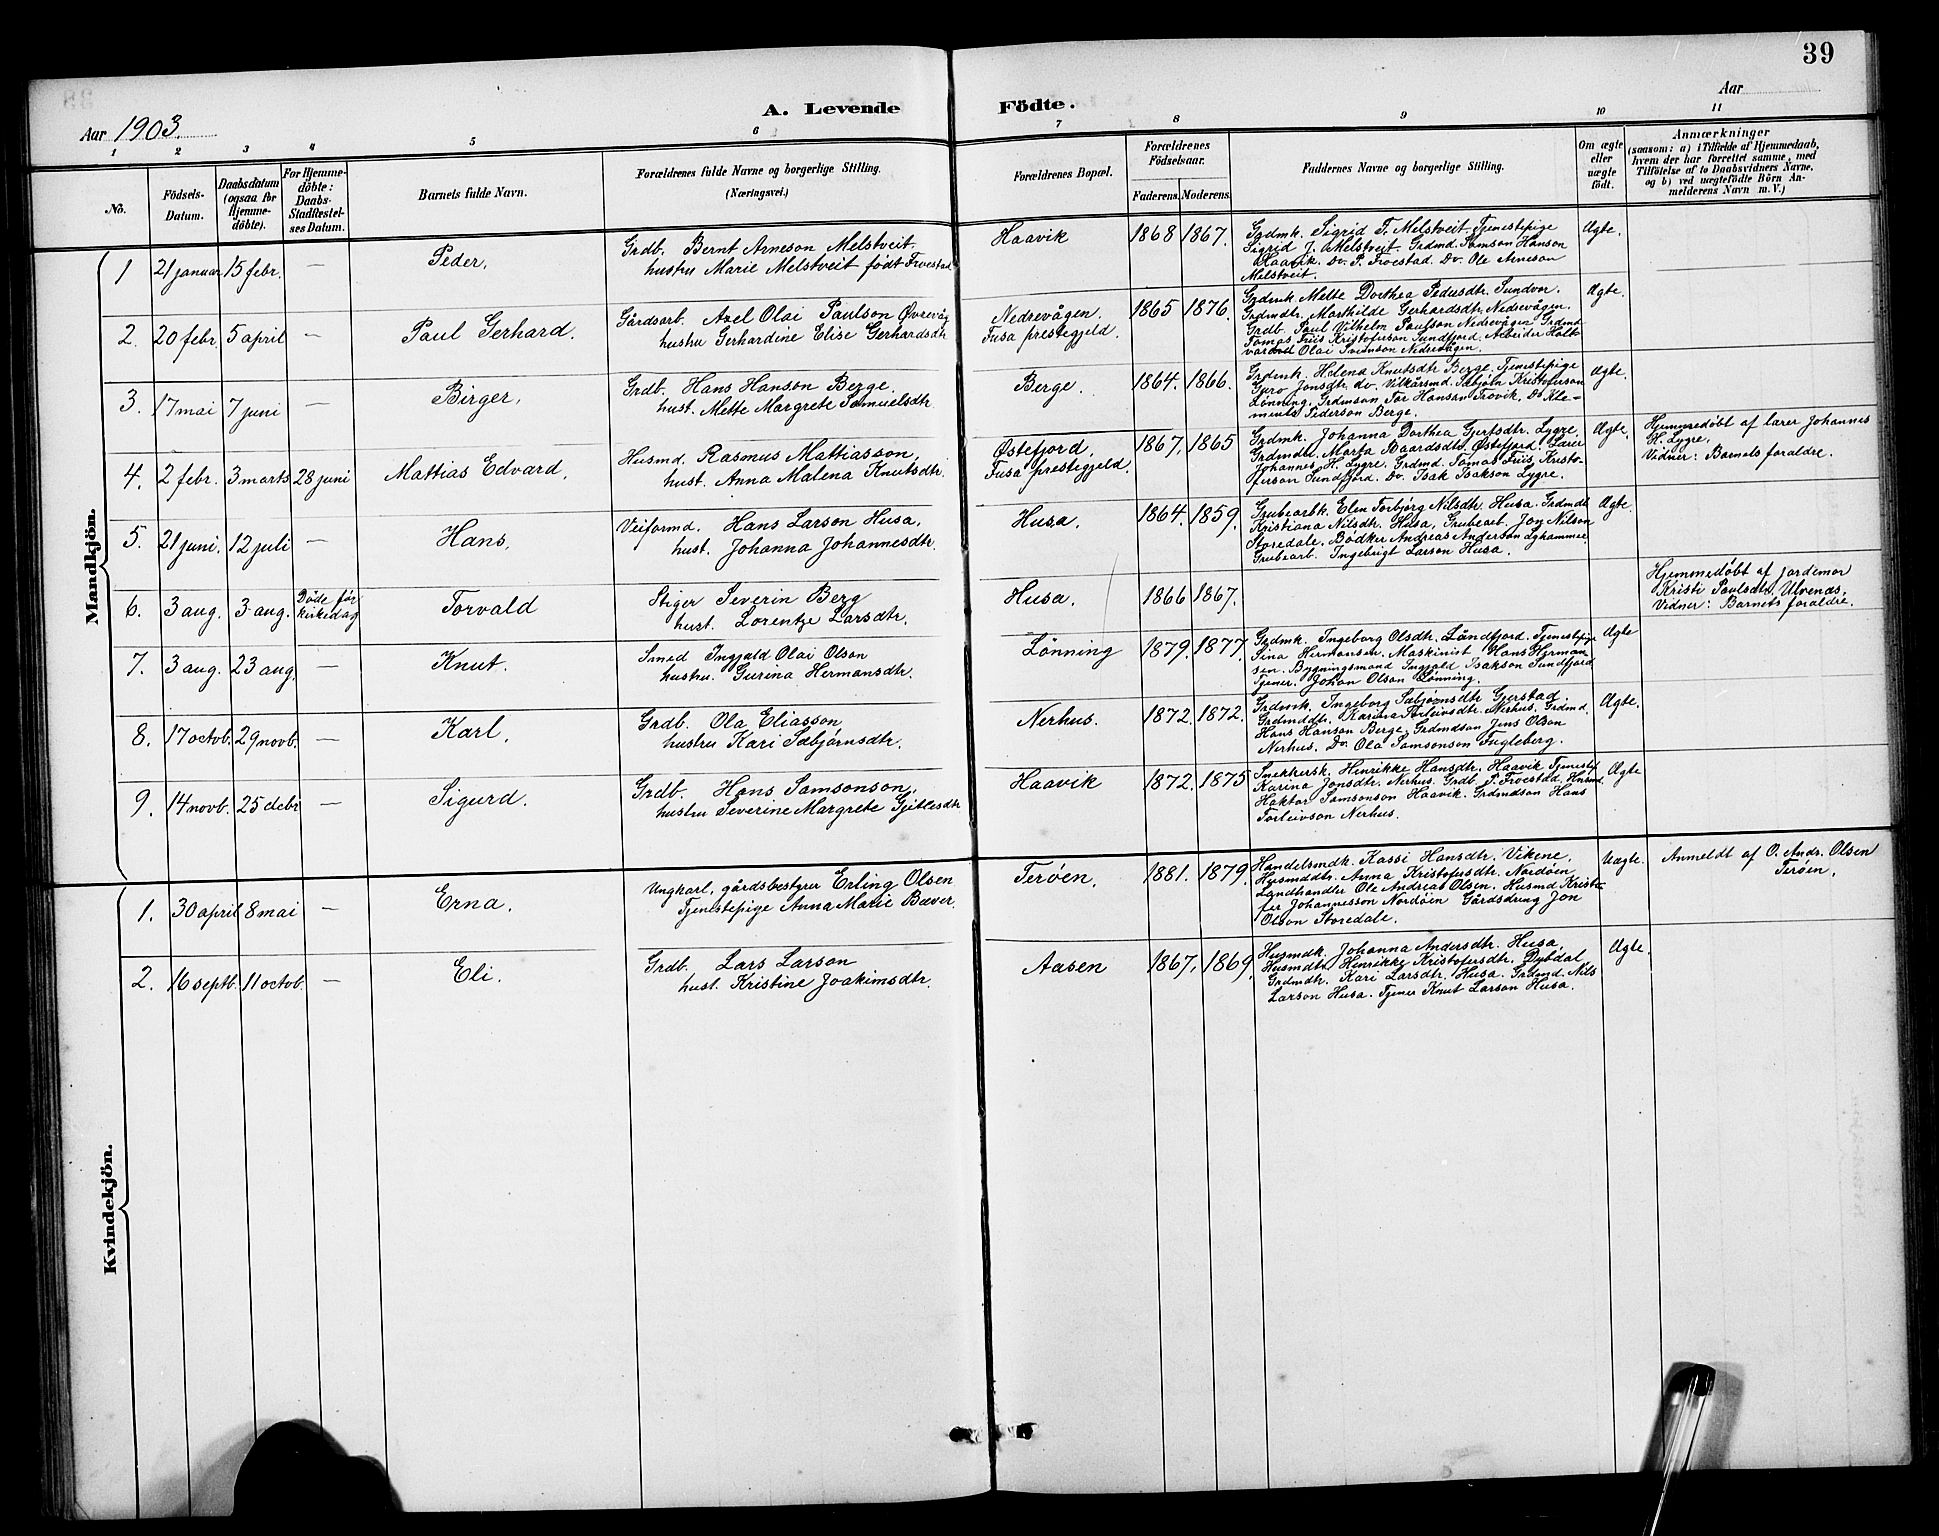 39
A. Levende Födte.
Aar 1903.
Aar
1 2 3 4 5 6 7 8 9 10 11
No.
Födsels-Datum.
Daabsdatum (ogsaa for Hjemme-döbte).
For Hjemme-döbte: Daabs-Stadfæstel-ses Datum.
Barnets fulde Navn.
Forældrenes fulde Navne og borgerlige Stilling. (Næringsvei.)
Forældrenes Bopæl.
Forældrenes Födselsaar.
Faderens. Moderens.
Faddernes Navne og borgerlige Stilling.
Om ægte eller uægte födt.
Anmærkninger
(saasom: a) i Tilfælde af Hjemmedaab,
hvem der har forrettet samme, med
Tilföielse af to Daabsvidners Navne,
og b) ved uægtefödte Börn An-
melderens Navn m. V.)
Mandkjön.
1 21 januar 15 febr. — Peder,
Grdb. Bernt Arneson Melstveit.
hustru Marie Melstveit født Froestad
Haavik 1868 1867.
Grdmk. Sigrid T. Melstveit. Tjenestepige
Sigrid J. Melstveit. Grdmd. Samson Hanson
Haavik. Do. P. Froestad. Do. Ole Arneson
Melstveit.
Ægte.
2. 20 febr. 5 april — Paul Gerhard.
Gårdsarb. Axel Olai Paulson Øvrevåg
hustru Gerhardine Elise Gerhardsdtr
Nedrevågen.
Fusa prestegjeld.
1865 1876.
Grdmk Mette Dorthea Pedersdtr. Sundvor.
Grdmdtr. Marthilde Gerhardsdtr. Nedrevågen.
Grdb. Paul Vilhelm Paulson Nedrevågen Grdmd
Tomas Friis Kristoferson Sundfjord. Arbeider
Olai Svenson Nedrevågen.
Ægte.
3. 17 mai 7 juni — Birger,
Grdb. Hans Hanson Berge.
hust. Mette Margrete Samuelsdtr
Berge. 1864. 1866.
Grdmk. Helena Knutsdtr Berge. Tjenestepige
Guro Jonsdtr. do. Vilkårsmd. Sæbjørn Kristoferson
Lønning. Grdmson Tor Hanson Trovik. Do Kle-
mens Pederson Berge.
Ægte.
4. 2 febr. 3 marts 28 juni Mattias Edvard,
Husmd. Rasmus Mattiasson,
hust. Anna Malena Knutsdtr.
Østefjord,
Fusa prestegjeld.
1867, 1865
Grdmk. Johanna Dorthea Gjertsdtr. Lygre,
Grdmdtr. Marta Baardsdtr. Østefjord. Lærer
Johannes H. Lygre. Grdmd. Tomas Friis Kristo-
ferson Sundfjord. Do. Isak Isakson Lygre.
Ægte.
Hjemmedøbt af lærer Johannes
H. Lygre,
Vidner: Barnets forældre.
5. 21 juni. 12 juli — Hans,
Veiformd. Hans Larson Husa,
hust. Johanna Johannesdtr.
Husa. 1864. 1859.
Grubearbk. Elen Torbjørg Nilsdtr. Husa. Grdmdtr
Kristiana Nilsdtr. Husa, Grubearb. Jon Nilson
Storedale. Bødker Andreas Anderson Lghammer
Grubearb. Ingebrigt Larson Husa.
Ægte.
6. 3 aug. 3 aug. Døde før kirkedag Torvald
Stiger Severin Berg
hust. Lorentze Larsdtr.
Husa. 1866 1867.
Hjemmedøbt af jordemor
Kristi Paulsdtr. Ulvenæs,
Vidner: Barnets forældre.
7. 3 aug. 23 aug. — Knut.
Smed Ingjald Olai Olson
hustru. Gurina Hermansdtr.
Lønning 1879. 1877.
Grdmk. Ingeborg Olsdtr. Låndfjord. Tjenestepige
Sina Hermansen. Maskinist Hans Herman-
sen. Bygningsmand Ingjald Isakson Sundfjord
Tjener. Johan Olson Lønning.
Ægte
8. 17 octob. 29 novb. — Karl.
Grdb. Ola Eliasson
hustru Kari Sæbjørnsdtr.
Nerhus. 1872. 1872.
Grdmk. Ingeborg Sæbjørnsdtr Gjerstad.
Grdmddtr. Karina Torleivsdtr. Nerhus. Grdmd.
Hans Hanson Berge. Grdmdson Jens Olson
Nerhus. Do. Ola Samsonson Fugleberg.
Ægte.
9. 14 novb. 25 debr — Sigurd.
Grdb. Hans Samsonson,
hustru Severine Margrete Gjitlesdtr
Haavik 1872. 1875
Snekkersk. Henrikke Hansdtr. Haavik Tjenestep
Karina Jonsdtr. Nerhus. Grdb. P. Froestad, Husmd.
Haktor Samsonson Haavik. Grdmdson Hans
Torleivson Nerhus.
Ægte
Kvindekjön.
1. 30 april 8 mai — Erna.
Ungkarl, gårdsbestyrer Erling Olsen
Tjenestepige Anna Marie Bæver.
Terøen. 1881. 1879.
Handelsmdk. Kassi Hansdtr. Vikene,
Husmddtr. Anna Kristofersdtr. Nordøen
Landhandler Ole Andreas Olsen. Husmd Kristo-
fer Johannesson Nordøen Gårdsdreng Jon
Olson Storedale.
Uægte.
Anmeldt af O. Andr. Olsen
Terøen.
2. 16 septb. 11 octob. — Eli.
Grdb. Lars Larson
hust. Kristine Joakimsdtr.
Aasen 1867. 1869.
Husmdk. Johanna Andersdtr. Husa,
Husmdtr. Henrikke Kristofersdtr. Dybdal
Grdmdtr. Kari Larsdtr. Husa. Grdmd. Nils
Larson Husa. Tjener Knut Larson Husa.
Ægte.